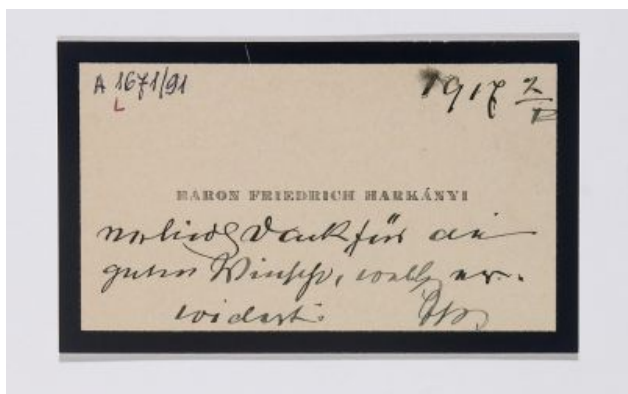 A 1671/91
L
1917
BARON FRIEDRICH HARKÁNYI
Dank für die
guten Wünsche, welche er-
widert